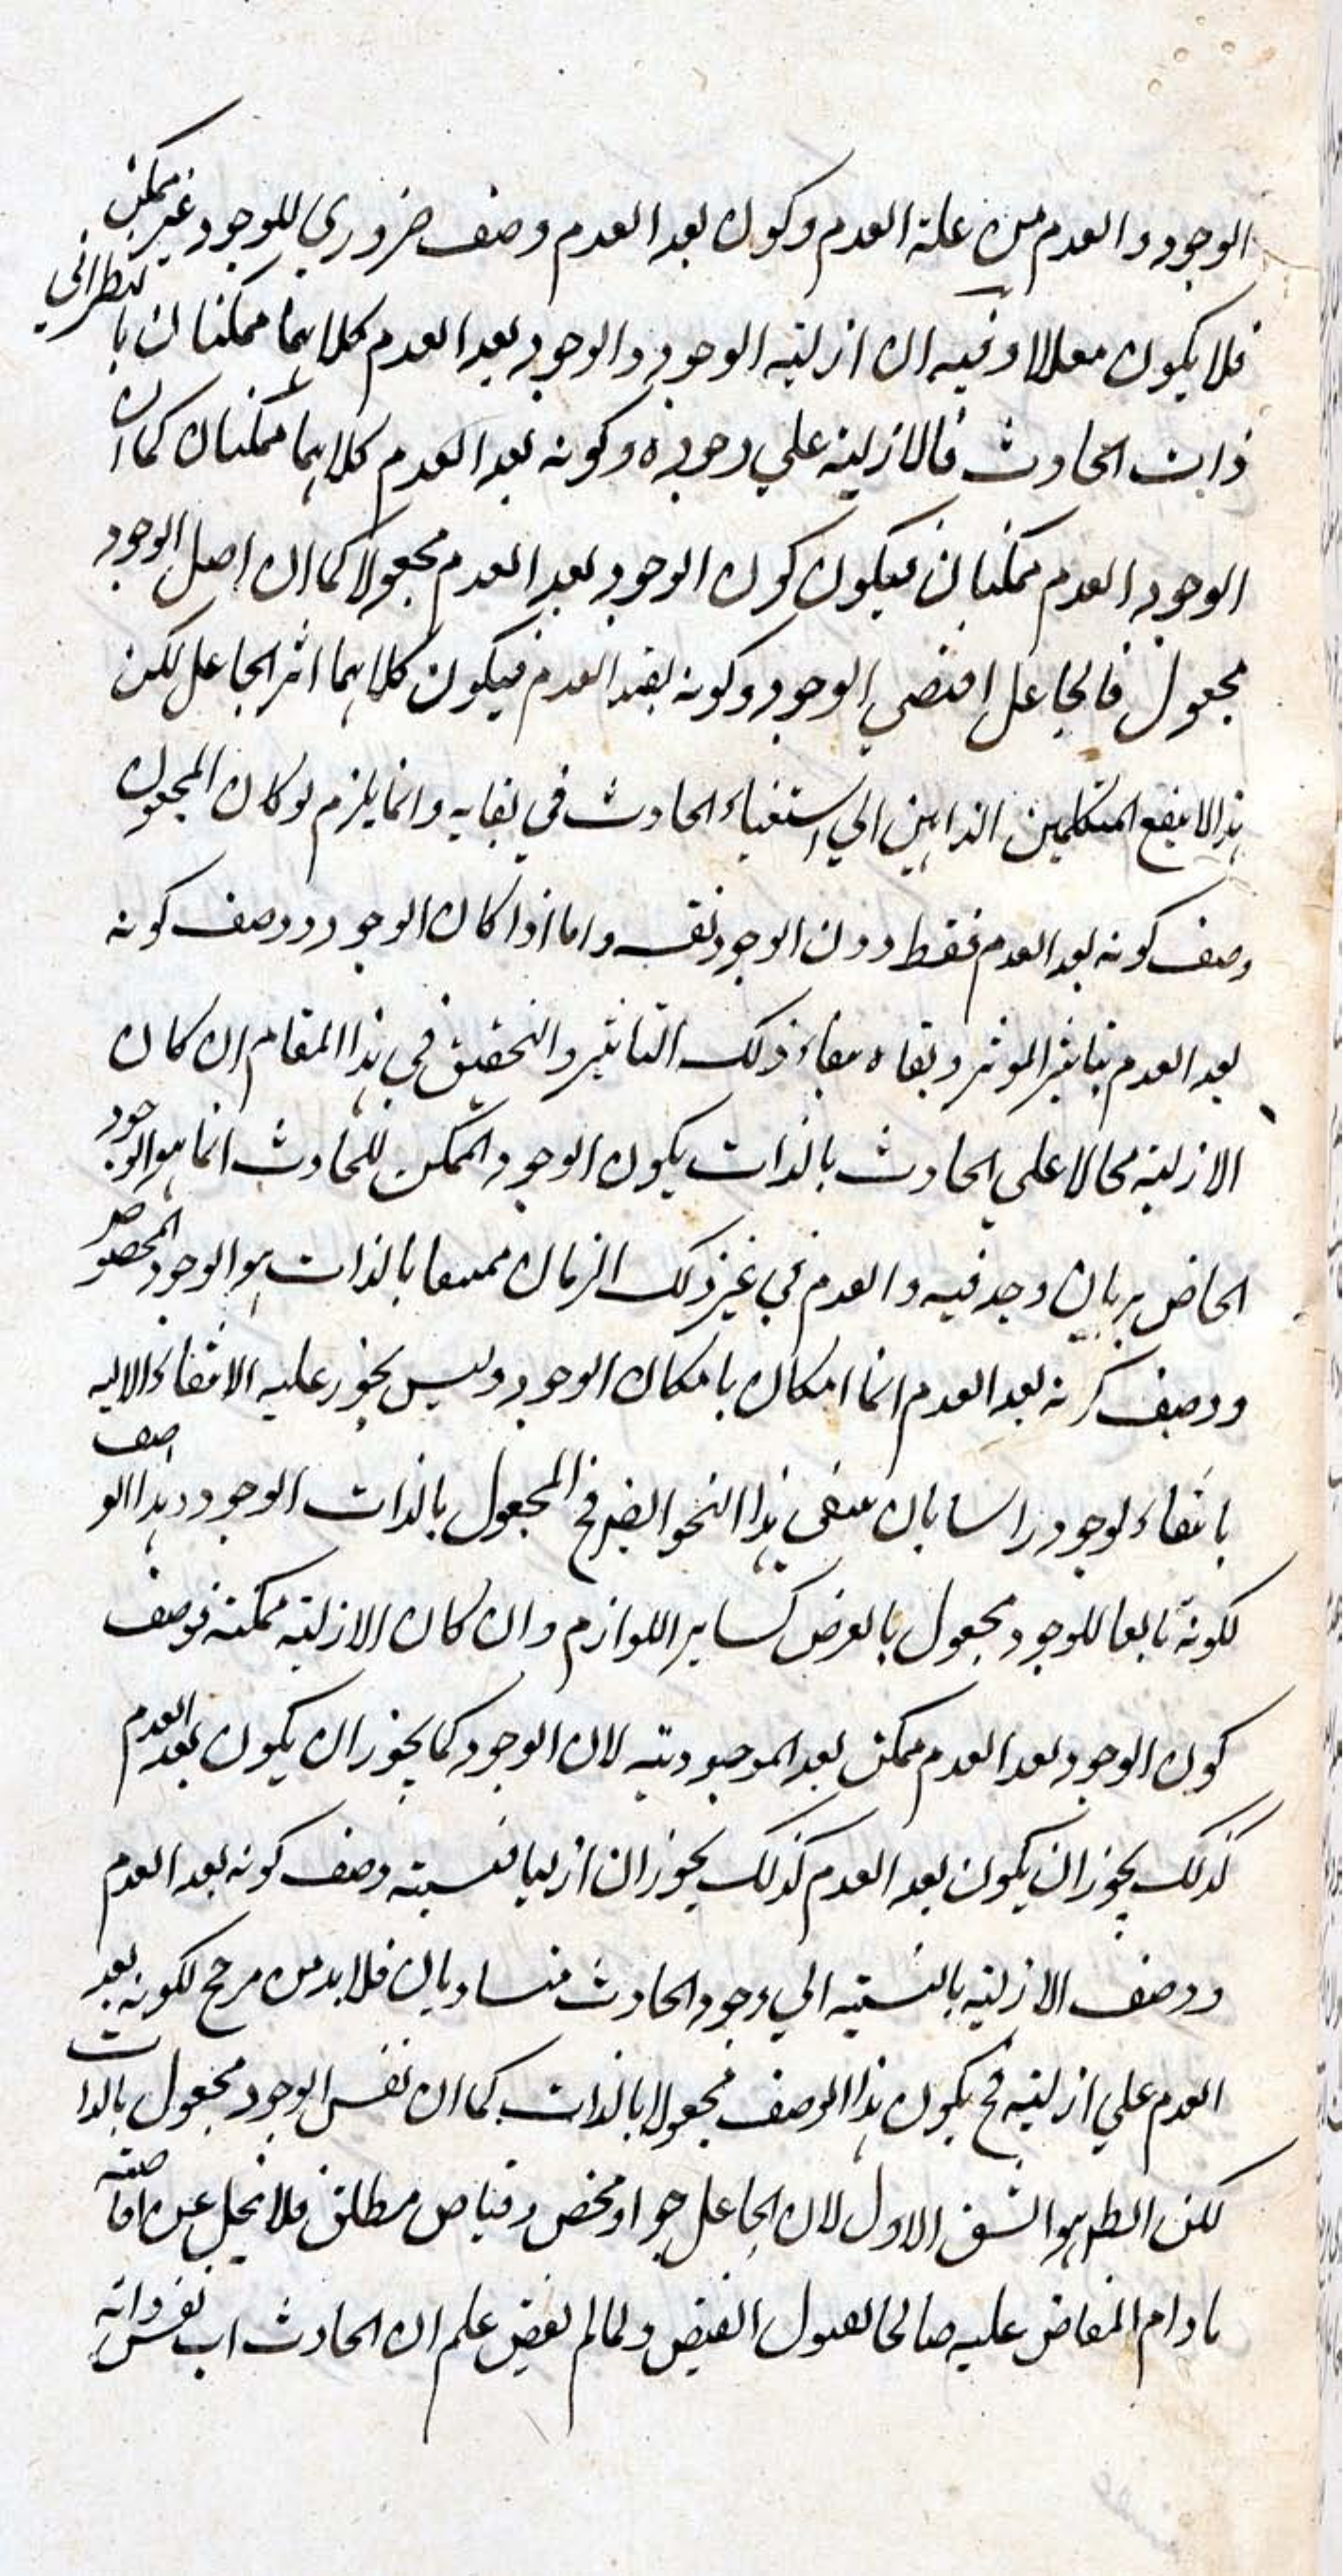 الوجود والعدم من علة العدم وكون بعد العدم وصف ضروري للوجود غير ممكن
فلا يكون معللا وفيه ان ازلية الوجود والوجود بعد العدم كلاهما ممكنان بالنظر الي
ذات الحادث فالازلية علي وجوده وكونه بعد العدم كلاهما ممكنان كما ان
الوجود العدم ممكنان فيكون كون الوجود بعد العدم مجعولا كما ان اصل الوجود
مجعول فالجاعل اقتضي الوجود وكونه بعد العدم فيكون كلاهما اثر الجاعل لكن
هذا لا ينفع المتكلمين الذاهبين الي استغناء الحادث في بقايه وانما يلزم لو كان المجعول
وصف كونه بعد العدم فقط دون الوجود نفسه واما اذا كان الوجود ووصف كونه
بعد العدم بتاثير الموثر وبقاه ببقاء ذلك التاثير والتحقيق في هذا المقام ان كان
الازلية محالا علي الحادث بالذات يكون الوجود الممكن للحادث انما هو الوجود
الخاص بزمان وجد فيه والعدم في غير ذلك الزمان ممتنعا بالذات هو الوجود المخصوص
ووصف كونه بعد العدم انما امكان بامكان الوجود وليس يجوز عليه الانتفاء الا
بانتفاء لوجود راسا بان ينتفى هذا النحو ايضا فح المجعول بالذات الوجود وهذا الوصف
لكونه تابعا للوجود مجعول بالعرض كساير اللوازم وان كان الازلية ممكنة فوصف
كون الوجود بعد العدم ممكن بعد الموجودية لان الوجود كما يجوز ان يكون بعد العدم
كذلك يجوز ان يكون بعد العدم كذلك يجوز ان ازليا فنسبته وصف كونه بعد العدم
ووصف الازلية بالنسبة الي وجود الحادث متساويان فلا بد من مرجح لكونه بعد
العدم علي ازلية فح يكون هذا الوصف مجعولا بالذات كما ان نفس الوجود مجعول بالذات
لكن الظ هو الشق الاول لان الجاعل جواد محض وفياض مطلق فلا يبخل عن افاضته
مادام المفاض عليه صالحا لقبول الفيض ولما لم يفض علم ان الحادث اب نفس ذاته